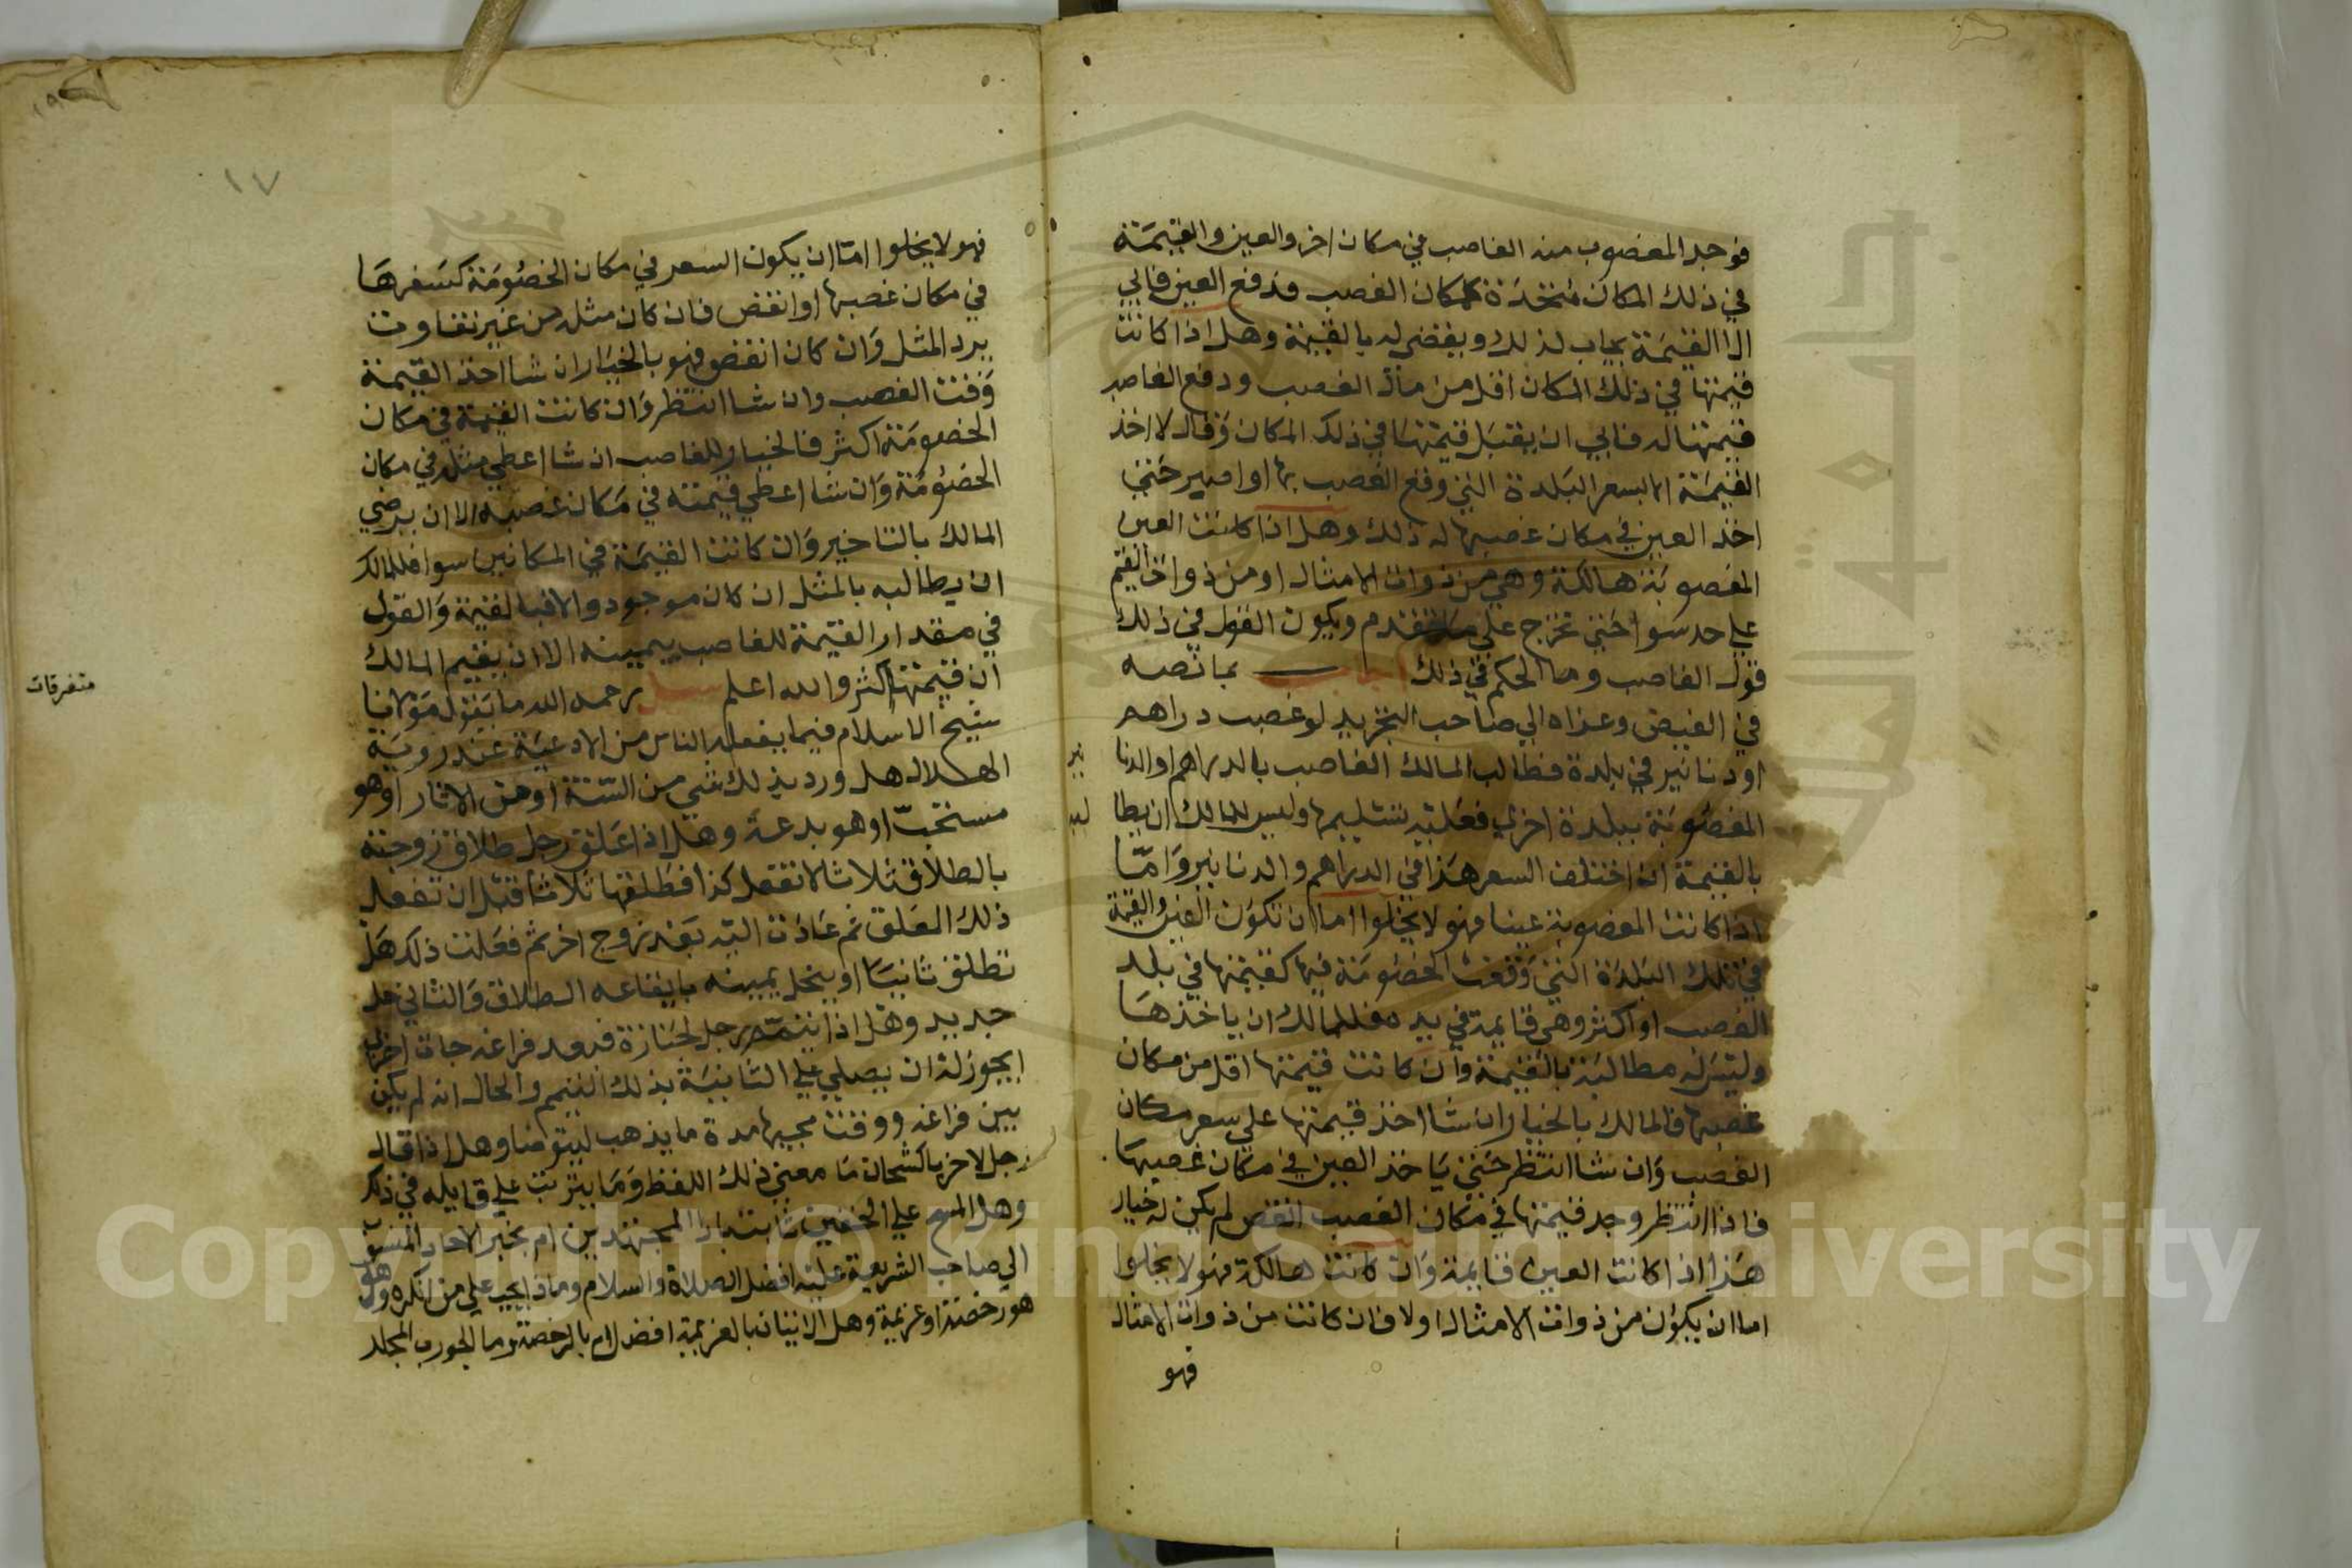 فوجد المغصوب منه الغاصب في مكان اخر والعين والقيمة
في ذلك المكان متحدة كمكان الغصب فدفع العين فابي
الا القيمة يجاب لذلك ويقضي له بالقيمة وهل اذا كانت
قيمتها في ذلك المكان اقل من مكان الغصب ودفع الغاصب
قيمتها له فابي ان يقبل قيمتها في ذلك المكان وقال لا اخذ
القيمة الا بسعر البلدة التي وقع الغصب بها او اصبر حتي
اخذ العين في مكان غصبها له ذلك وهل اذا كانت العين
المغصوبة هالكة وهي من ذوات الامثال او من ذوات القيم
علي حد سوا حتي تخرج علي ما تقدم ويكون القول في ذلك
قول الغاصب وما الحكم في ذلك اجاب بما نصه
في الفيض وعزاه الي صاحب التجريد لو غصب دراهم
او دنانير في بلدة فطالب المالك الغاصب بالدراهم او الدنا
نير
المغصوبة ببلدة اخري فعليه تسليمها وليس للمالك ان يطا
لبه
بالقيمة ان اختلف السعر هذا في الدراهم والدنانير واما
اذا كانت المغصوبة عينا فهو لا يخلوا اما ان تكون العين والقيمة
في تلك البلدة التي وقعت الخصومة فيها كقيمتها في بلد
الغصب او اكثر وهي قايمة في يده فللمالك ان ياخذها
وليس له مطالبته بالقيمة وان كانت قيمتها اقل من مكان
غصبها فالمالك بالخيار ان شا اخذ قيمتها علي سعر مكان
الغصب وان شا انتظر حتي ياخذ العين في مكان غصبها
فاذا انتظر وجد قيمتها في مكان الغصب انقص لم يكن له خيار
هذا اذا كانت العين قايمة وان كانت هالكة فهو لا يخلوا
اما ان يكون من ذوات الامثال او لا فان كانت من ذوات الامثال
فهو
١٧
فهو لا يخلوا اما ان يكون السعر في مكان الخصومة كسعرها
في مكان غصبها او انقص فان كان مثله من غير تفاوت
يرد المثل وان كان انقص فهو بالخيار ان شا اخذ القيمة
وقت الغصب وان شا انتظر وان كانت القيمة في مكان
الخصومة اكثر فالخيار للغاصب ان شا اعطي مثله في مكان
الخصومة وان شا اعطي قيمته في مكان غصبه الا ان يرضي
المالك بالتاخير وان كانت القيمة في المكانين سوا فللمالك
ان يطالبه بالمثل ان كان موجود والا فبالقيمة والقول
في مقدار القيمة للغاصب بيمينه الا ان يقيم المالك
ان قيمتها اكثر والله اعلم سيل رحمه الله ما يقول مولانا
متفرقات
شيخ الاسلام فيما يفعله الناس من الادعية عند روية
الهلال هل ورد بذلك شي من السنة او من الاثار او هو
مستحب او هو بدعة وهل اذا علق رجل طلاق زوجته
بالطلاق ثلاثا لا تفعل كذا فطلقها ثلاثا قبل ان تفعل
ذلك المعلق ثم عادت اليه بعد زوج اخر ثم فعلت ذلك هل
تطلق ثانيا او ينحل يمينه بايقاعه الطلاق والثاني حل
جديد وهل اذا تيمم رجل لجنازة فبعد فراغه جات اخري
ايجوز له ان يصلي علي الثانية بذلك التيمم والحال انه لم يكن
بين فراغه ووقت مجيها مدة ما يذهب ليتوضا وهل اذا قال
رجل لاخر ياكشحان ما معني ذلك اللفظ وما يترتب علي قايله في ذلك
وهل المسح علي الخفين ثابت المجتهدين ام بخبر الاحاد المنسوب
الي صاحب الشريعة عليه افضل الصلاة والسلام وماذا يجب علي من انكره وهل
هو
هو رخصة او عزيمة وهل الاتيان بالعزيمة افضل ام بالرخصة وما الجورب المجلد
Copyright © King Saud University